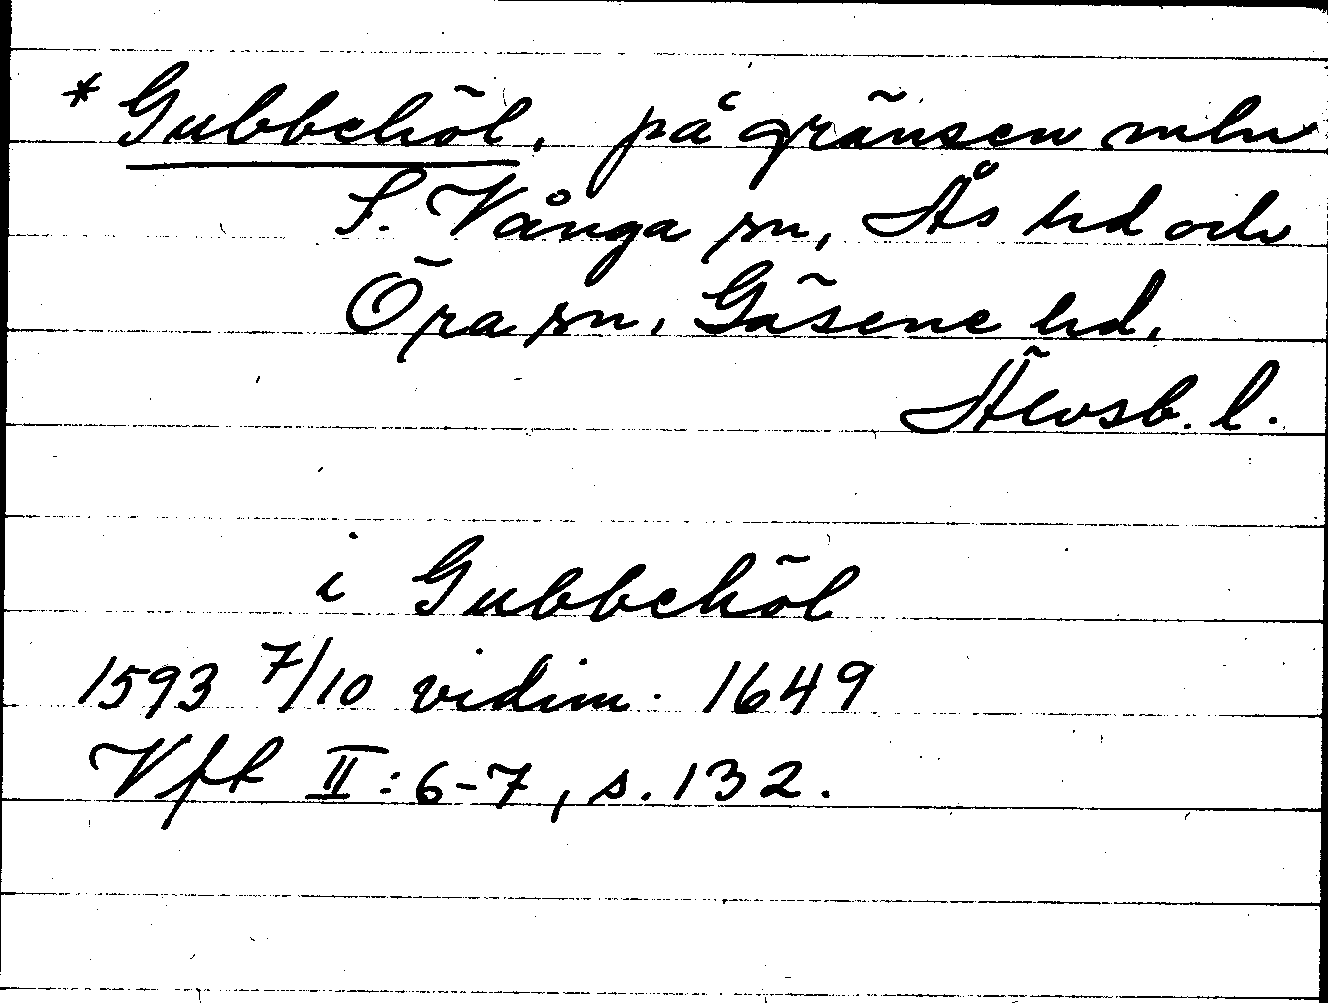 * Gubbehöl, på gränsen mln
S. Vånga sn, Ås hd och
Öra sn, Gäsene hd,
Älvsb. l.
i Gubbehöl
1593 7/10 vidim. 1649
Vft II: 6-7, s. 132.